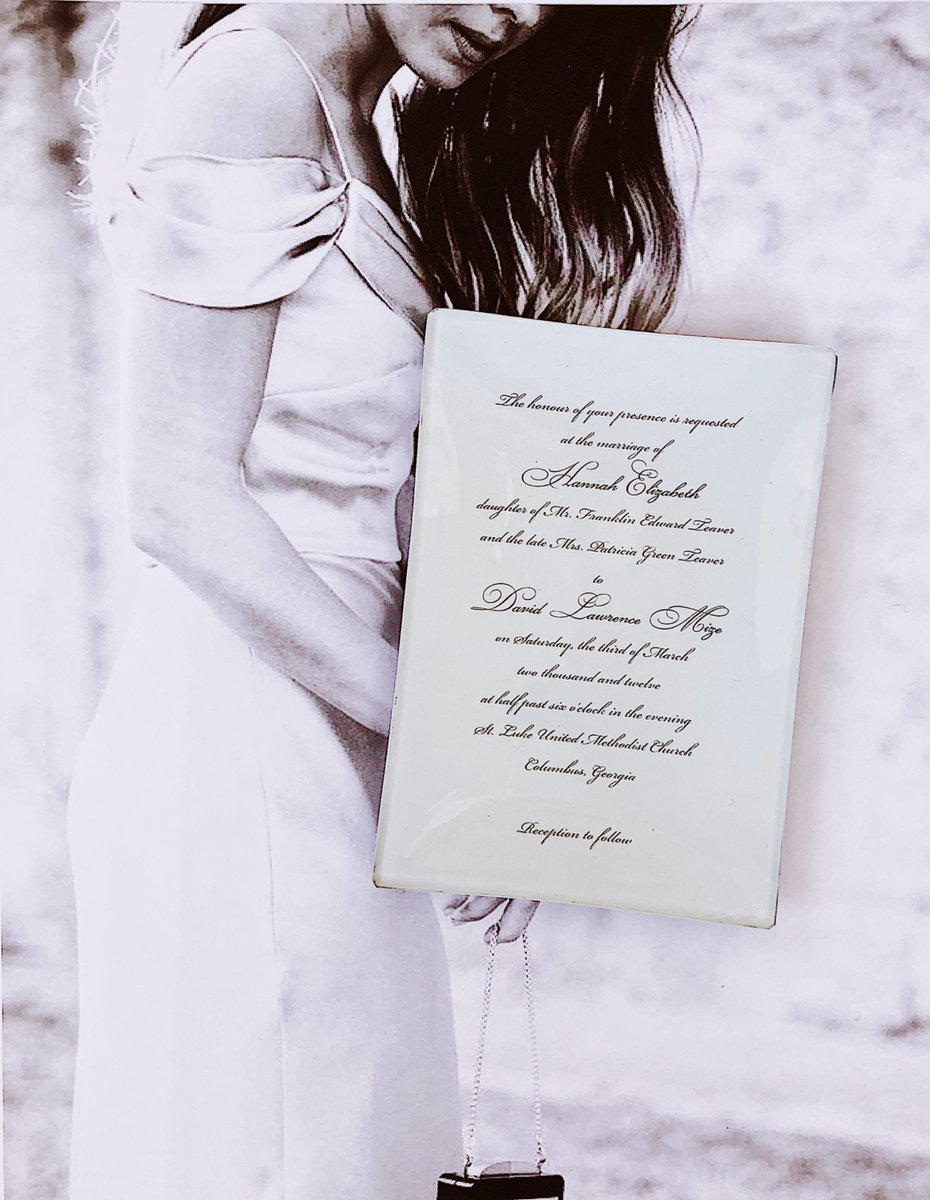 The honour of your presence is requested
at the marriage of
Hannah Elizabeth
daughter of Mr. Franklin Edward Teaver
and the late Mrs. Patricia Green Teaver
to
David Lawrence Mize
on Saturday, the third of March
two thousand and twelve
at half past six o'clock in the evening
St. Luke United Methodist Church
Columbus, Georgia
Reception to follow